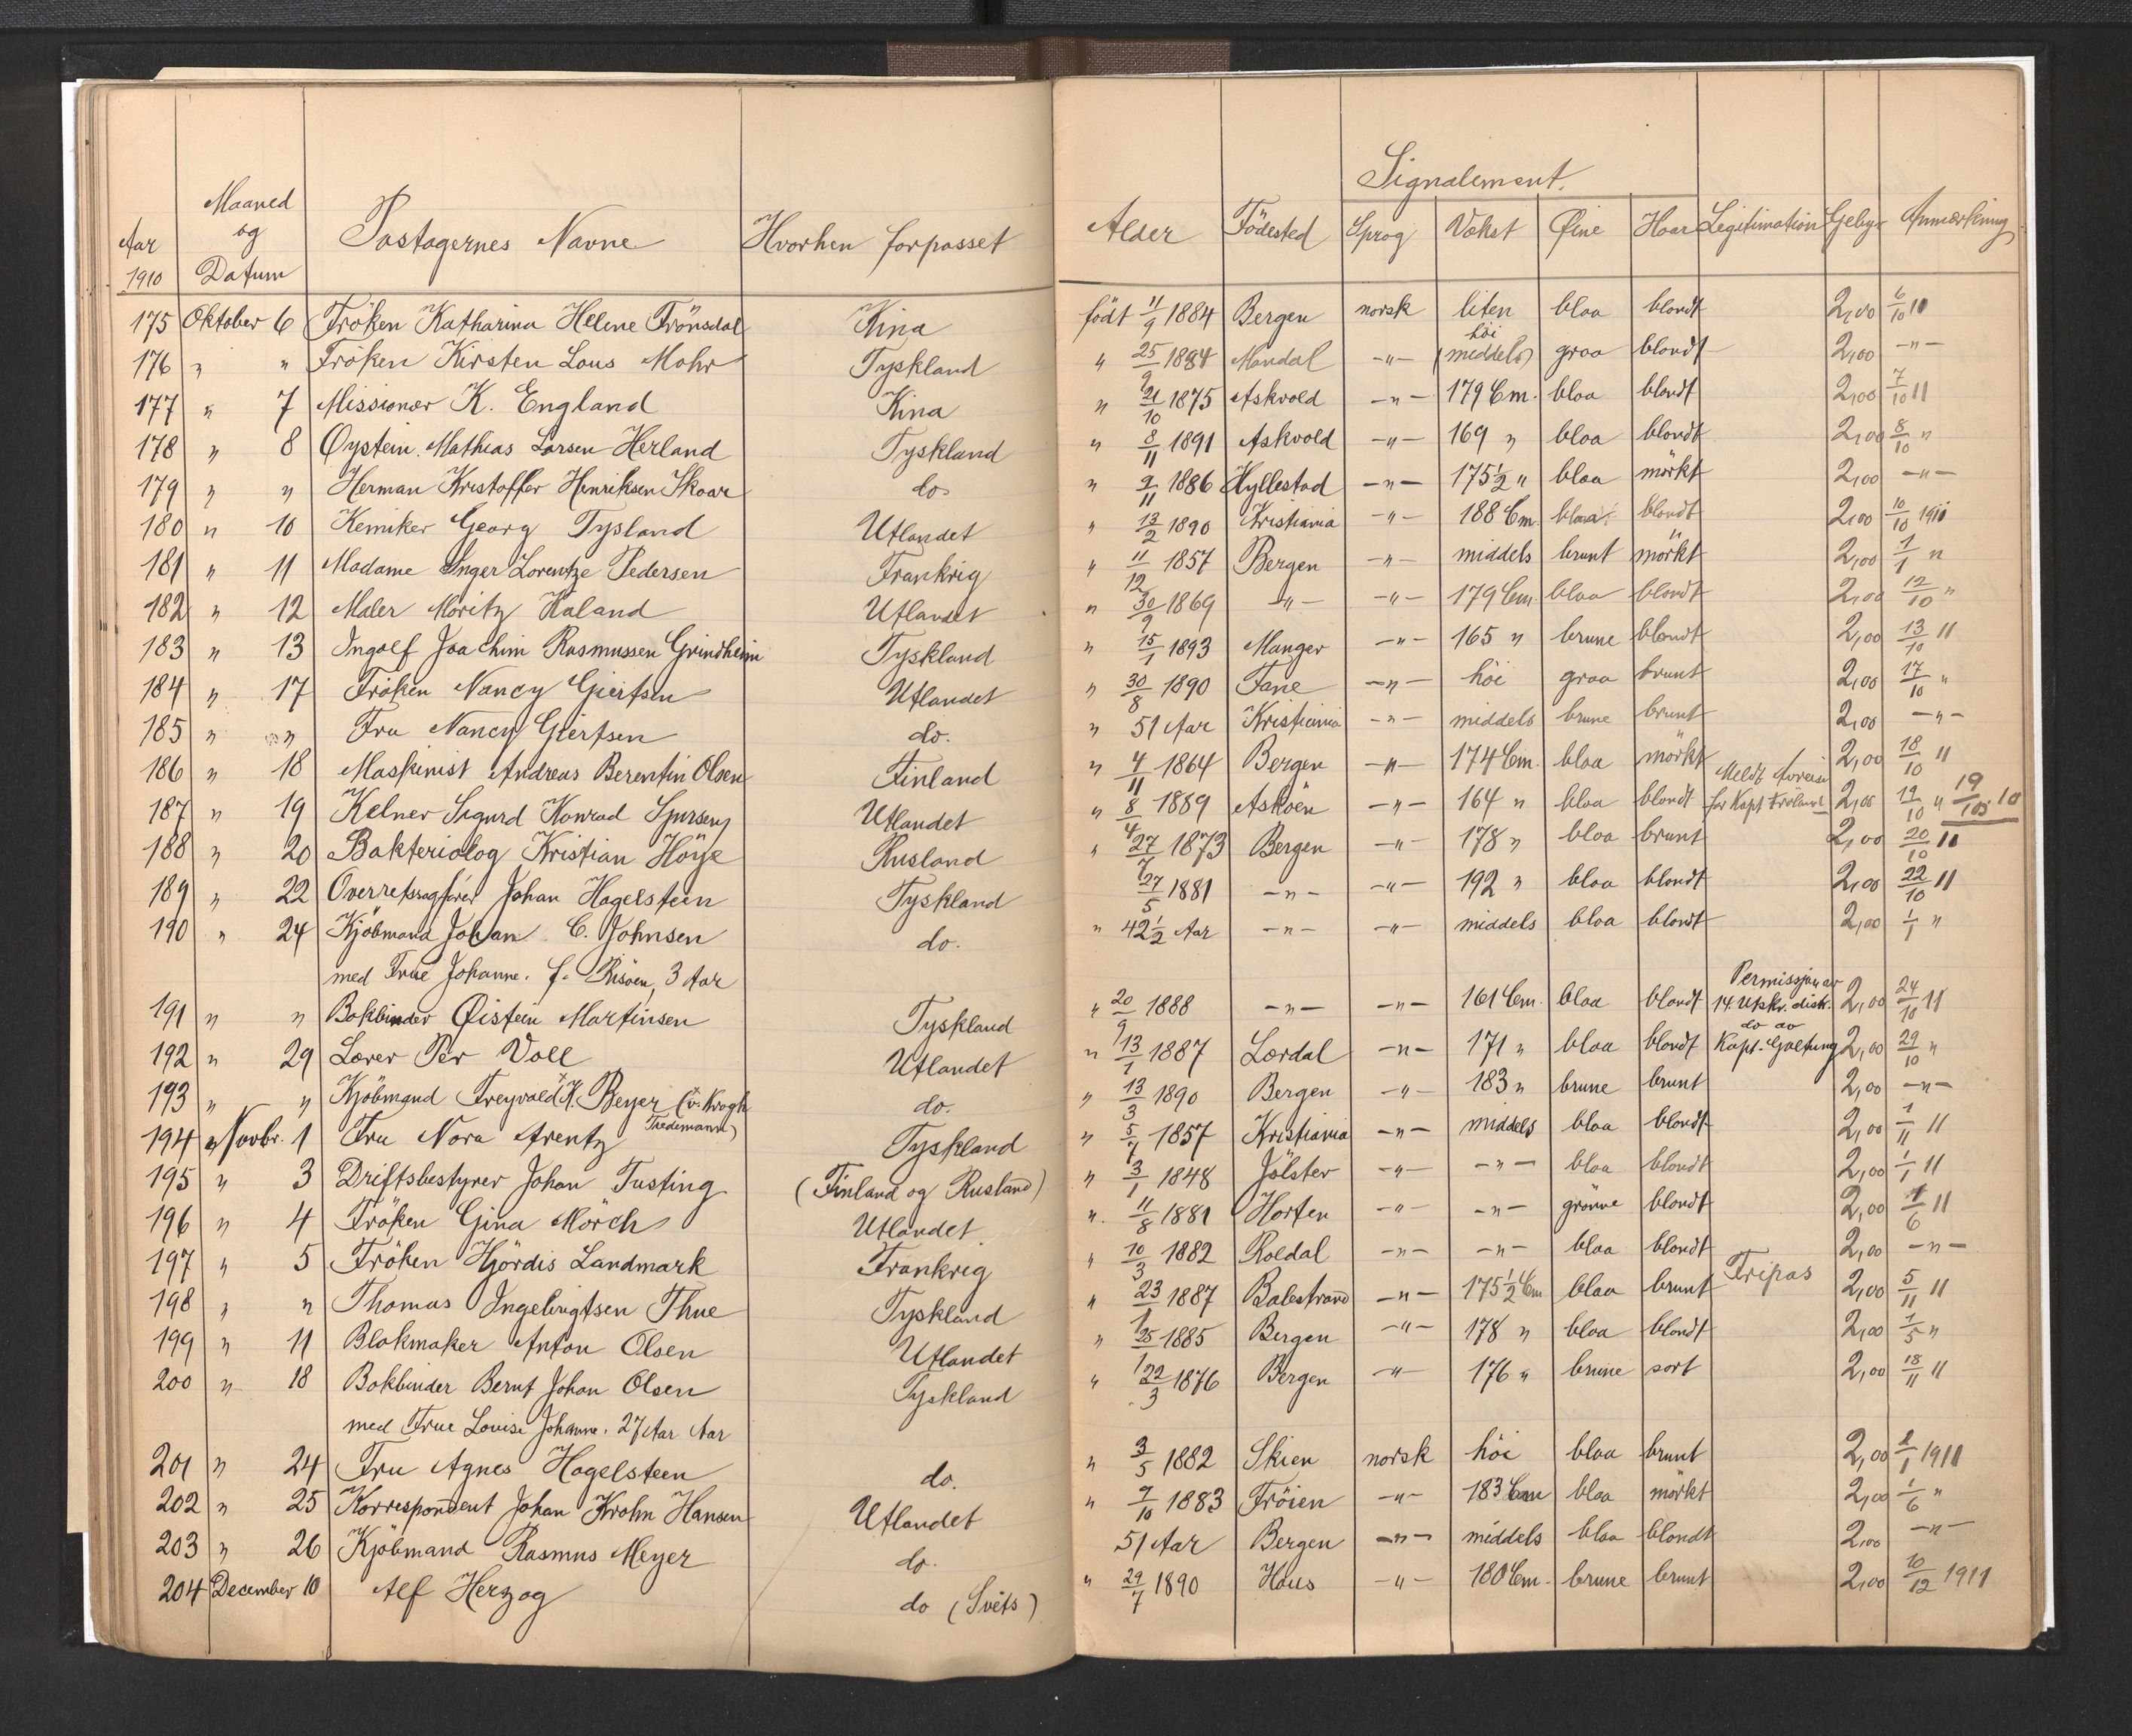 Signalement.
Aar 1910 | Maaned og Datum | Pastagernes Navne | Hvorhen forpasset | Alder | Födested | Sprog | Vækst | Øine | Haar | Legitimation | Gebyr | Anmerkning
175 Oktober 6 Fröken Katharina Helene Frönsdal Kina født 11/9 1884 Bergen norsk liten blaa blondt 2,00 6/10 11
176 " " Fröken Kirsten Lous Mohr Tyskland " 25/9 1884 Mandal -"- høi (middels) graa blondt 2,00 -"-
177 " 7 Missionær K. England Kina " 21/10 1875 Askvold -"- 179 Cm. blaa blondt 2,00 7/10 11
178 " 8 Øystein Mathias Larsen Herland Tyskland " 8/11 1891 Askvold -"- 169 " blaa blondt 2,00 8/10 "
179 " " Herman Kristoffer Henriksen Skaar do. " 9/11 1886 Hyllestad -"- 175 1/2 " blaa mörkt 2,00 -"-
180 " 10 Kemiker Georg Tysland Utlandet " 13/2 1890 Kristiania -"- 188 Cm. blaa blondt 2,00 10/10 1911
181 " 11 Madame Inger Lorentze Pedersen Frankrig " 11/12 1857 Bergen -"- middels brunt mörkt 2,00 1/1 "
182 " 12 Maler Moritz Kaland Utlandet " 30/9 1869 -"- -"- 179 Cm. blaa blondt 2,00 12/10 "
183 " 13 Ingolf Joachim Rasmussen Grindheim Tyskland " 15/1 1893 Manger -"- 165 " brune blondt 2,00 13/10 11
184 " 17 Fröken Nancy Giertsen Utlandet " 30/8 1890 Fane -"- höi graa brunt 2,00 17/10 "
185 " " Fru Nancy Giertsen do. " 51 Aar Kristiania -"- middels brune brunt 2,00 -"-
186 " 18 Maskinist Andreas Berentin Olsen Finland " 4/11 1864 Bergen -"- 174 Cm. blaa mörkt 2,00 18/10 11
187 " 19 Kelner Sigurd Konrad Utlandet " 8/4 1889 Askøen -"- 164 " blaa blondt Meldt Avreise for Kapt. Fröland 2,00 19/10 " 19/10 10
188 " 20 Bakteriolog Kristian Höye Rusland " 27/7 1873 Bergen -"- 178 " blaa brunt 2,00 20/10 11
189 " 22 Overretssagfører Johan Hagelsteen Tyskland 27/5 1881 -"- -"- 192 " blaa blondt 2,00 22/10 11
190 " 24 Kjöbmand Johan C. Johnsen do. " 42 1/2 Aar -"- -"- middels blaa blondt 2,00 1/1 "
med Frue Johanne. f. Risöen, 3 Aar
191 " " Bokbinder Øistein Martinsen Tyskland " 20/9 1888 -"- -"- 161 Cm. blaa blondt Permissjon av 14. Utskr. disk. 2,00 24/10 11
192 " 29 Lærer Per Voll Utlandet " 13/1 1887 Lærdal -"- 171 " blaa blondt do av Kapt. Galtung 2,00 29/10 "
193 " " Kjöbmand Freyvald K. Beyer (v. Krogh Tredemann) do. " 13/3 1890 Bergen -"- 183 " brune brunt 2,00 -"-
194 Novbr. 1 Fru Nora Arentz Tyskland " 5/7 1857 Kristiania -"- middels blaa blondt 2,00 1/11 11
195 " 3 Driftsbestyrer Johan Tusting (Finland og Rusland) " 3/1 1848 Jölster -"- -"- blaa blondt 2,00 1/1 11
196 " 4 Fröken Gina Mörch Utlandet. " 11/8 1881 Horten -"- -"- grönne blondt 2,00 1/6 11
197 " 5 Fröken Hjördis Landmark Frankrig " 10/3 1882 Roldal -"- -"- blaa blondt 2,00 -"-
198 " " Thomas Ingebrigtsen Thue Tyskland " 23/1 1887 Balestrand -"- 175 1/2 Cm blaa brunt Fripas 2,00 5/11 11
199 " 11 Blokmaker Anton Olsen Utlandet " 25/1 1885 Bergen -"- 178 " blaa blondt 2,00 1/5 "
200 " 18 Bokbinder Bernt Johan Olsen Tyskland " 22/3 1876 Bergen -"- 176 " brune sort 2,00 18/11 11
med Frue Louise Johanne. 27 Aar Aar
201 " 24 Fru Agnes Hagelsteen do. " 3/5 1882 Skien norsk höi blaa brunt 2,00 2/1 1911
202 " 25 Korrespondent Johan Krohn Hansen Utlandet " 9/10 1883 Fröien -"- 183 Cm blaa mörkt 2,00 1/6 "
203 " 26 Kjöbmand Rasmus Meyer do. 51 Aar Bergen -"- middels blaa blondt 2,00 -"-
204 December 10 Alf Herzog do (Svets) " 29/7 1890 Haus -"- 180 Cm. brune brunt 2,00 10/12 1911